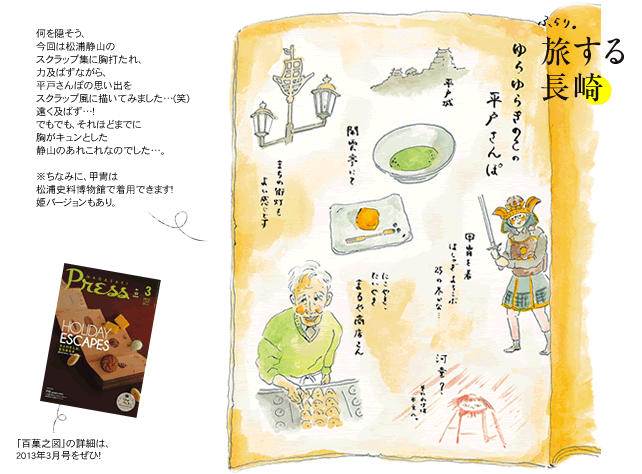 何を隠そう、
今回は松浦静山の
スクラップ集に胸打たれ、
力及ばずながら、
平戸さんぽの思い出を
スクラップ風に描いてみました…(笑)
遠く及ばず…!
でもでも、それほどまでに
胸がキュンとした
静山のあれこれなのでした…。
※ちなみに、甲冑は
松浦史料博物館で着用できます!
姫バージョンもあり。
ふらり。
旅する
長崎
ゆらゆらきのこの
平戸さんぽ
平戸城
閑雲亭にて
まちの街灯も
よい感じです
甲冑を着
はしゃぎよろこぶ
にこやきを
たいやき
まるや商店さん
河童?
NAGASAKI
PRESS
3
HOLIDAY
ESCAPES
「百菓之図」の詳細は、
2013年3月号をぜひ!